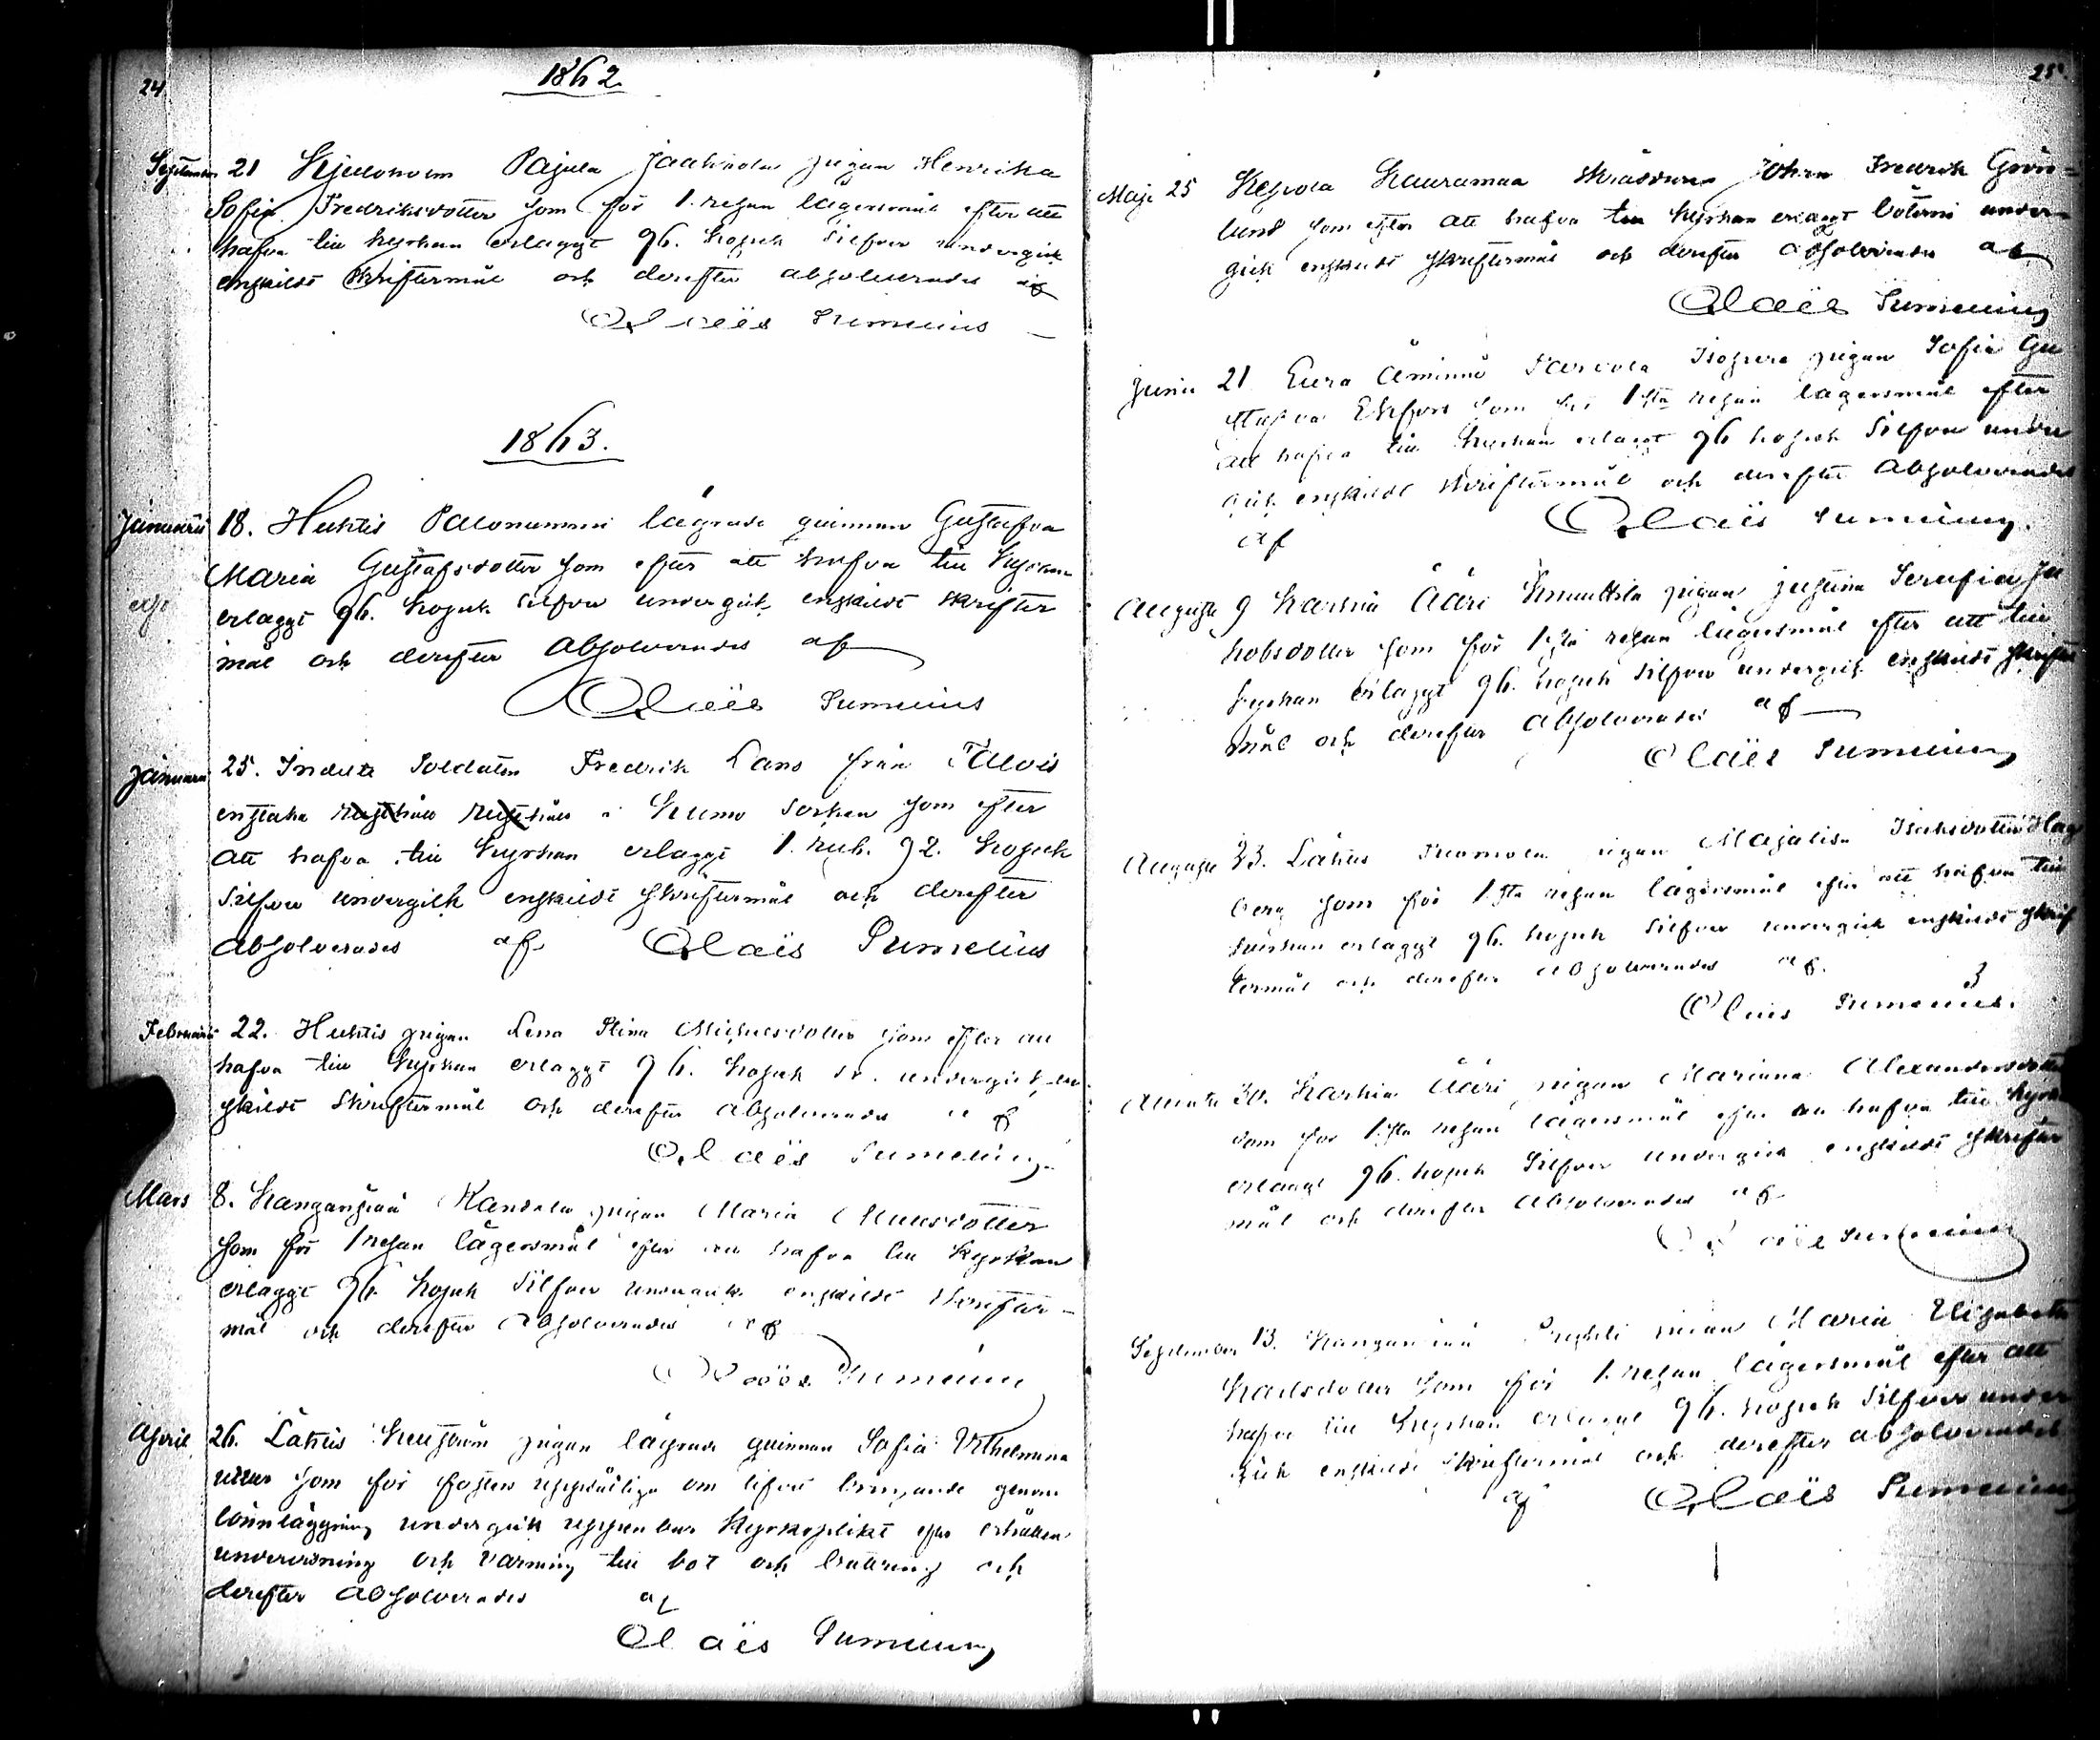 24
1862.
September 21 Kjuloholm Pajula Jaakkola pigan Henrika
Sofia Fredriksdotter som för 1. resan lägersmål efter att
hafva till kyrkan erlaggt 96. kopek silfver undergick
enskildt skriftermål och derefter absolverades af
Claës Sumelius
1863.
Januarii 18. Huhtis lägrade quinnan Gustafva
Maria Gustafsdotter som efter att hafva till kyrkan
erlaggt 96. kopek silfver undergick enskildt skrifter
mål och derefter absolverades af
Claës Sumelius
Januarii 25. Indelte Soldaten Fredrik Lans från
i Kumo Socken som efter
att hafva till kyrkan erlaggt 1. rub. 92. kopek
silfver undergick enskildt skriftermål och derefter
absolverades af Claës Sumelius
Februarii 22. Huhtis pigan Lena Stina Michelsdotter som efter att
hafva till kyrkan erlaggt 96. kopek Sr. undergick en
skildt skriftermål och derefter absolverades af
Claës Sumelius
Mars 8. Kanganpää pigan Maria
som för 1 resan lägersmål efter att hafva till kyrkan
erlaggt 96. kopek silfver undergick enskildt skrifter-
mål och derefter absolverades af
Claës Sumelius
April 26. pigan lägrade quinnan Sofia Vilhelmina
som för fosters om lifvet bringande genom
lönnläggning undergick uppenbar kyrkoplikt efter erhållen
undervisning och varning till bot och bättring och
derefter absolverades af
Claës Sumelius
25
Maji 25 Kepola Kauramaa skräddaren Johan Fredrik Grön-
lund som efter att hafva till kyrkan erlaggt böterne under-
gick enskildt skriftermål och derefter absolverades af
Claës Sumelius
Junii 21 Eura Åminne pigan Sofia Gu
stafva Ekfors som för 1sta resan lägersmål efter
att hafva till kyrkan erlaggt 96 kopek silfver under
gick enskildt skriftermål och derefter absolverades
af Claës Sumelius.
Augusti 9 Karhia Ääri pigan Justina Serafia Ja
kobsdotter som för 1sta resan lägersmål efter att till
kyrkan erlaggt 96. kopek silfver undergick enskildt skrifter
mål och derefter absolverades af
Claës Sumelius
Augusti 23. pigan Majalisa Isaksdotter Hag
berg som för 1sta resan lägersmål efter att hafva till
kyrkan erlaggt 96. kopek silfver undergick enskildt skrif
termål och derefter absolverades af.
Claës Sumelius.
30. Karhia Ääri pigan Mariana Alexandersdotter
som för 1sta resan lägersmål efter att hafva till kyrkan
erlaggt 96. kopek silfver undergick enskildt skrifter
mål och derefter absolverades af
Claës Sumelius
September 13. Kanganpää pigan Maria Elisabeta
Karlsdotter som för 1. resan lägersmål efter att
hafva till kyrkan erlaggt 96. kopek silfver under
gick enskildt skriftermål och derefter absolverades
af Claës Sumelius